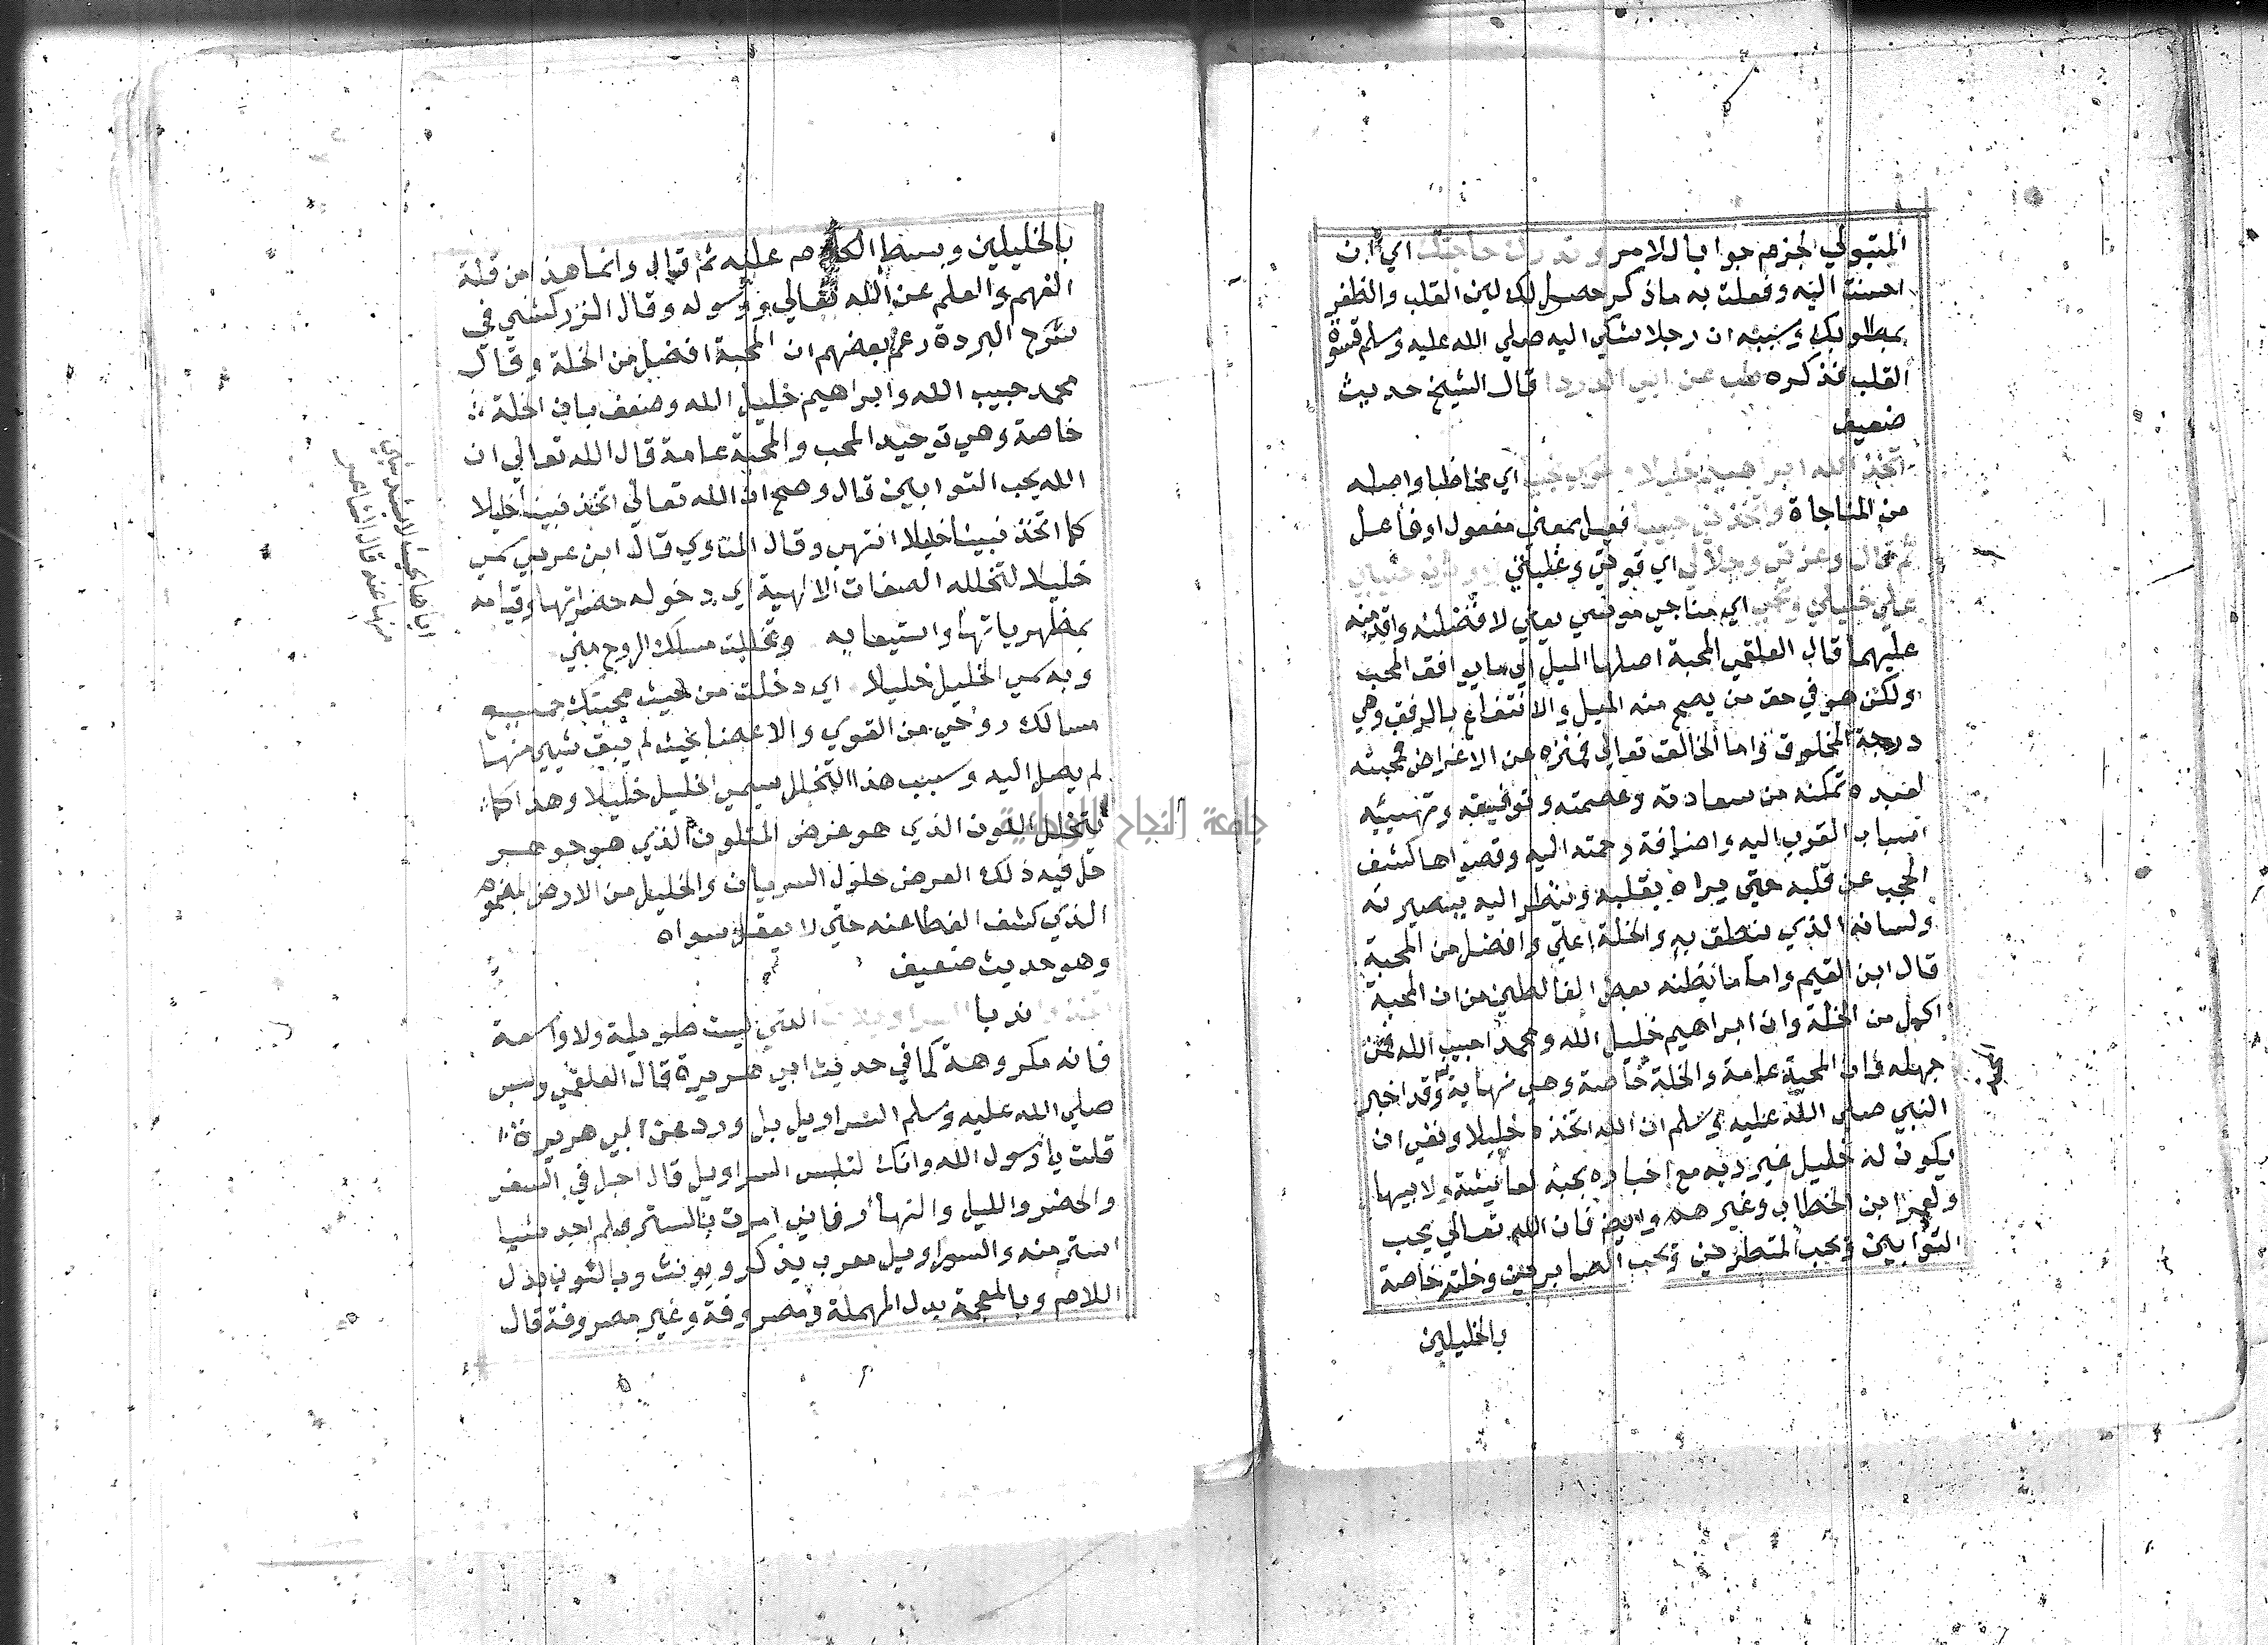 المتبولي لجزم جوابا للامر وتدرك حاجتك اي ان
احسنت اليه وفعلت به ماذكر حصل لك لين القلب والظفر
بمطلوبك وسببه ان رجلا شكى اليه صلي الله عليه وسلم قسوة
القلب فذكره طب عن ابي الدردا قال الشيخ حديث
ضعيف
اتخذ الله ابراهيم خليلا وموسى نجيا اي مخاطبا واصله
من المناجاة واتخذني حبيبا فعيل بمعني مفعول او فاعل
ثم قال وعزتي وجلالي اي قوتي وغلبتي لاوثرن حبيبي
علي خليلي ونجيي اي مناجي موسي يعني لافضلنه واقدمنه
عليهما قال العلقمي المحبة اصلها الميل الي ما يوافق المحب
ولكن هو في حق من يصح منه الميل والانتفاع بالرفق وهي
درجة المخلوق واما الخالق تعالي فمنزه عن الاغراض فمحبته
لعبده تمكنه من سعادته وعصمته وتوفيقه وتهيئته
اسباب القرب اليه وافاضة رحمته اليه وقصواها كشف
الحجب عن قلبه حتي يراه بقلبه وينظر اليه ببصيرته
ولسانه الذي ينطق به والخلة اعلي وافضل من المحبة
قال ابن القيم واما ما يظنه بعض الغالطين من ان المحبة
اكمل من الخلة وان ابراهيم خليل الله ومحمدا حبيب الله فمن
جهله فان المحبة عامة والخلة خاصة وهي نهاية وقد اخبر
النبي صلي الله عليه وسلم ان الله اتخذه خليلا ونفي ان
يكون له خليل غير ربه مع اخباره بحبه لعائشة ولابيها
ولعمر ابن الخطاب وغيرهم وايضا فان الله تعالي يحب
التوابين ويحب المتطهرين ويحب الصابرين وخلته خاصة
بالخليلين
بالخليلين وبسط الكلام عليه ثم قال وانما هذا من قلة
الفهم والعلم عن الله تعالي ورسوله وقال الزركشي في
شرح البردة زعم بعضهم ان المحبة افضل من الخلة وقال
محمد حبيب الله وابراهيم خليل الله وضعف بان الخلة
خاصة وهي توحيد المحب والمحبة عامة قال الله تعالي ان
الله يحب التوابين قال وصح ان الله تعالي اتخذ نبينا خليلا
كما اتخذ نبينا خليلا انتهي وقال المناوي قال ابن عربي سمي
خليلا لتخلله الصفات الالهية اي دخوله حضراتها وقيامه
بمظهرياتها واستيعابه وتخللت مسلك الروح مني
وبه سمي الخليل خليلا اي دخلت من حيث محبتك جميع
مسالك روحي من القوي والاعضا بحيث لم يبق شيي منها
لم يصل اليه وسبب هذا التخلل سمي الخليل خليلا وهذا كما
يتخلل اللون الذي هو عرض المتلون الذي هو جوهر
حل فيه ذلك العرض حلول السريان والخليل من الارض
الذي كشف الغطا عنه حتي لا يعقل سواه
وهو حديث ضعيف
اتخذوا ندبا السراويلات التي ليست طويلة ولا واسعة
فانه مكروهة كما في حديث ابي هريرة قال العلقمي ولبس
صلي الله عليه وسلم السراويل بل ورد عن ابي هريرة
قلت يا رسول الله وانك لتلبس السراويل قال اجل في السفر
والحضر والليل والنهار فاني امرت بالستر فلم اجد شيا
استر منه والسراويل معرب يذكر ويونث وبالنون بدل
اللام وبالمعجمة بدل المهملة ومصروفة وغير مصروفة قال
جامعة النجاح الوطنية